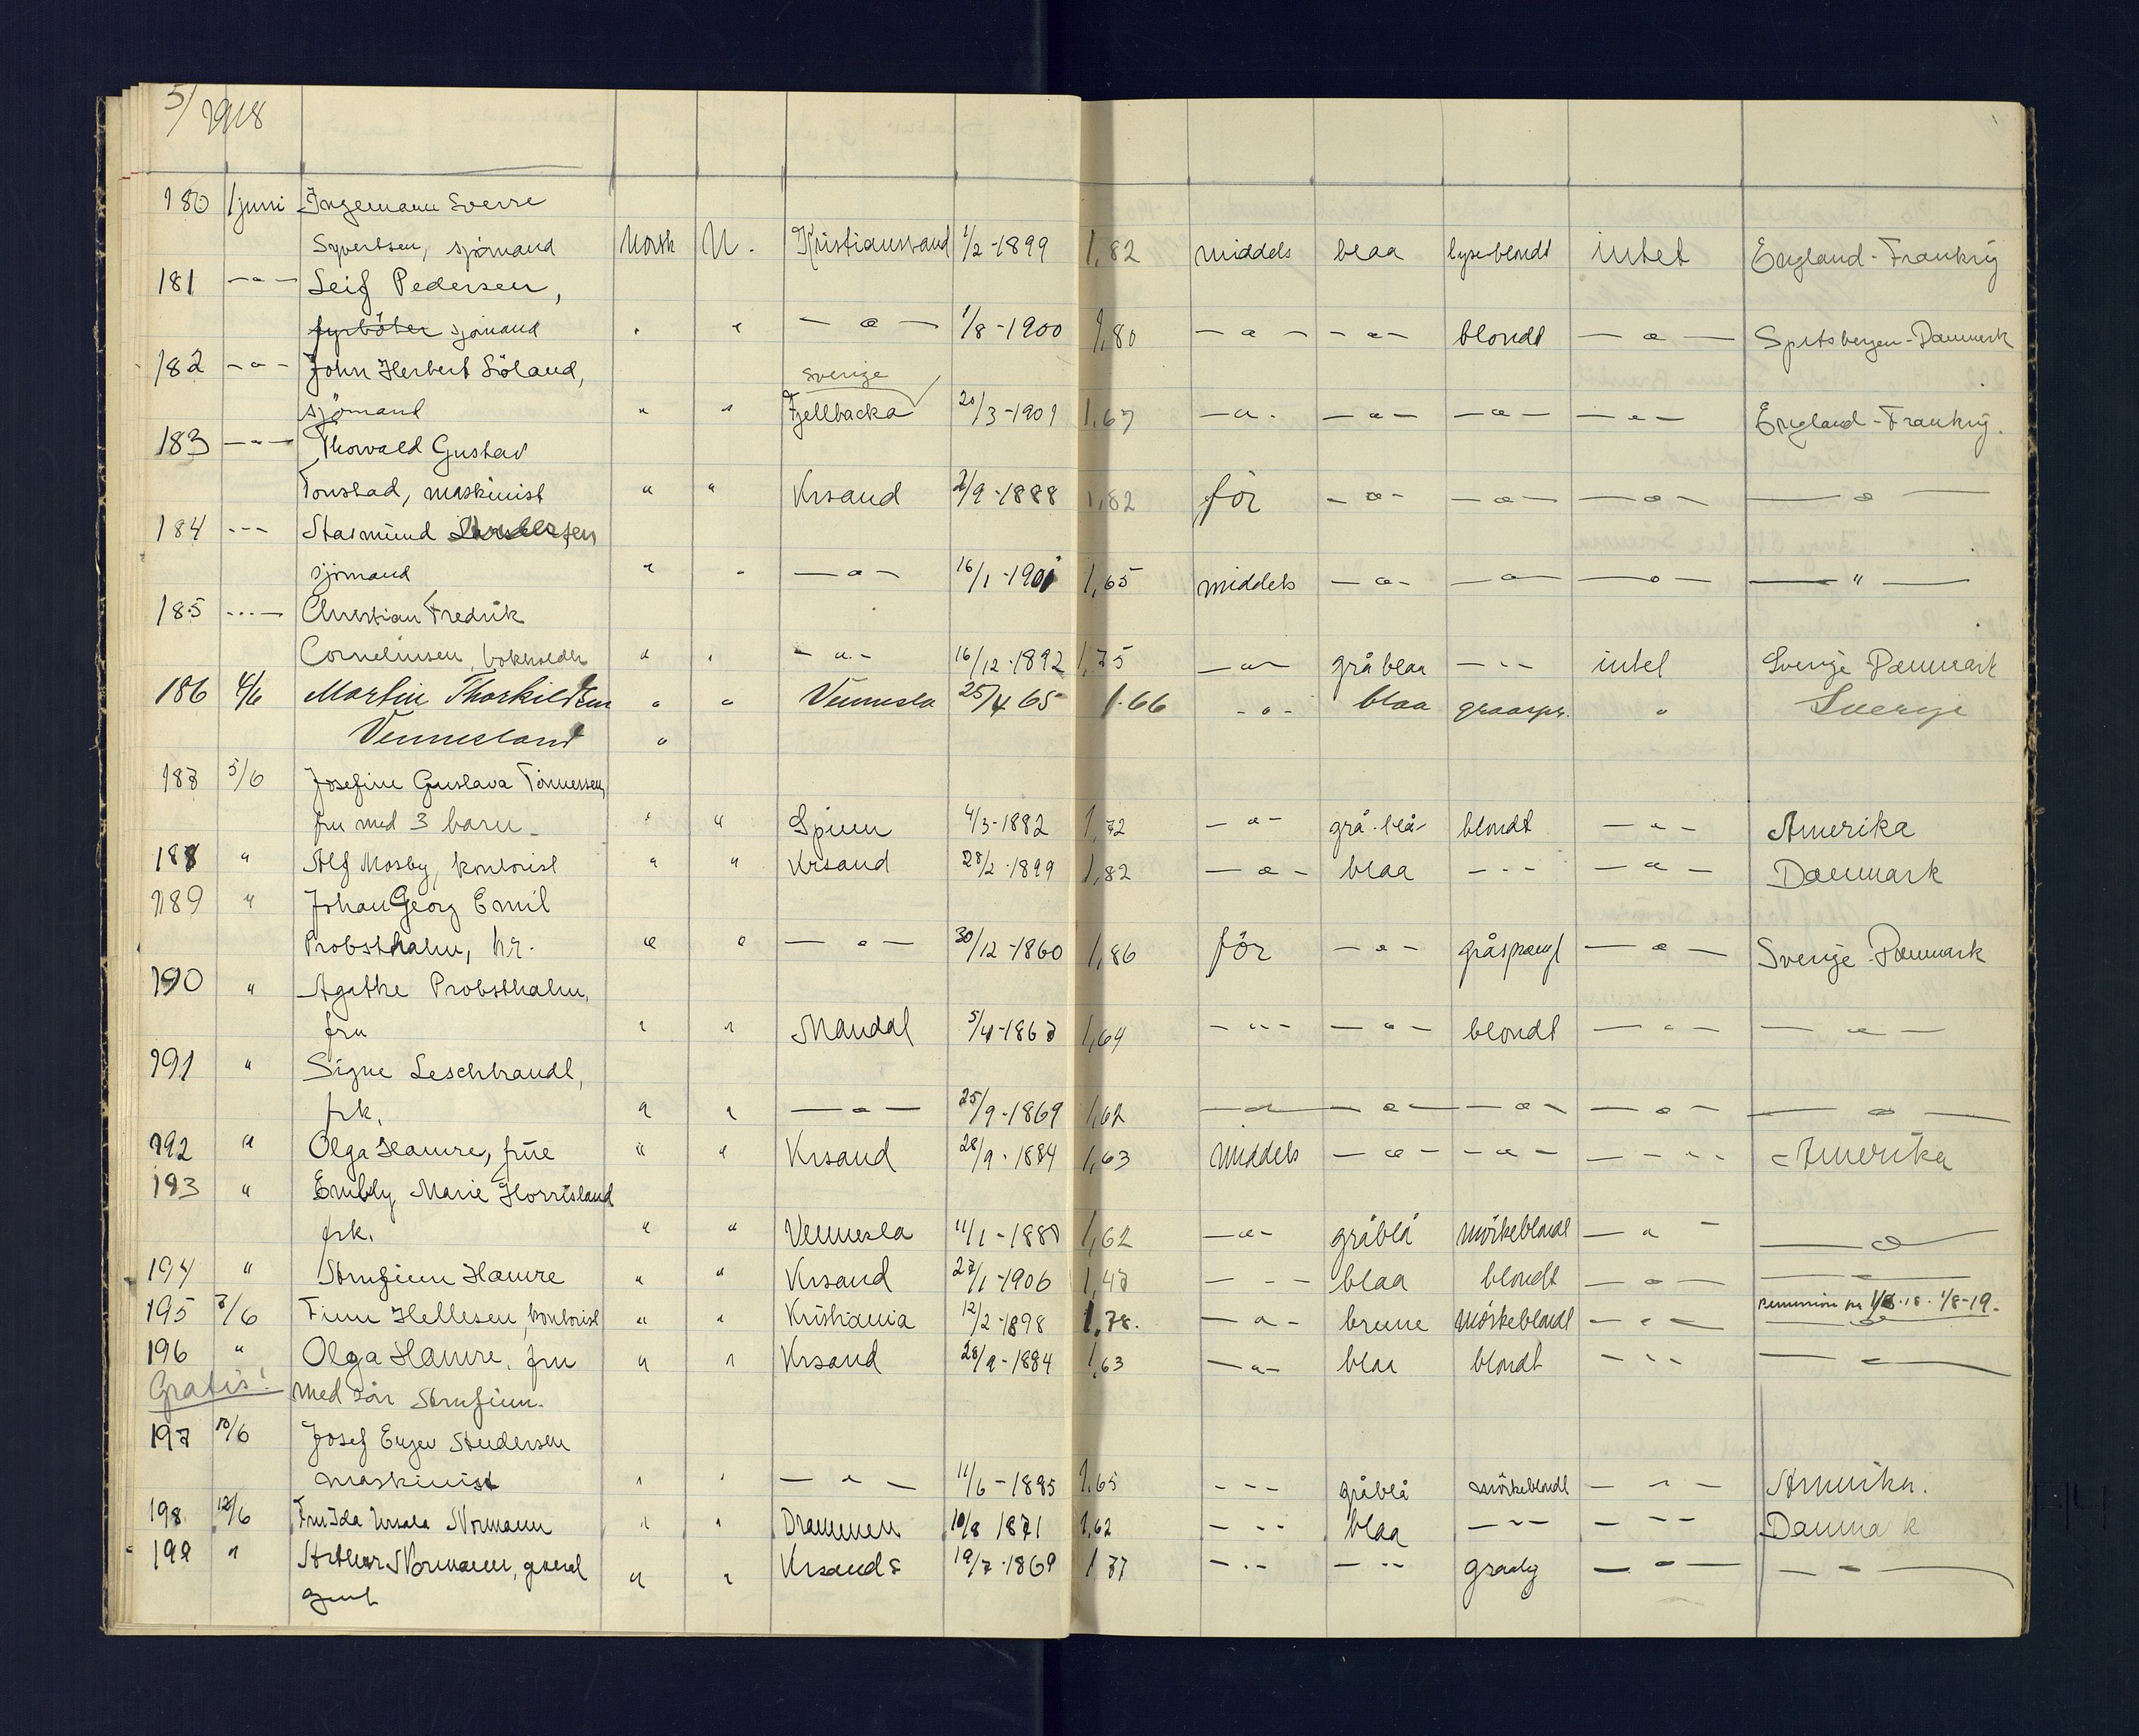 5/1918
180 1 juni Ingemann Sverre
Syvertsen, sjömand Norsk N. Kristianssand 1/2-1899 1,82 middels blaa lyseblondt intet England-Frankrig
181 -"- Leif Pedersen,
fyrböter sjömand " " -"- 1/8-1900 1,80 -"- -"- blondt -"- Spitsbergen-Danmark
182 -"- John Herbert Söland,
Sverige
sjömand " " Fjellbacka 20/3-1901 1,67 -"- -"- -"- -"- England-Frankrig.
183 -"- Thorvald Gustav
Tonstad, maskinist " " Krsand 2/9-1888 1,82 för -"- -"- -"- -"-
184 --- Starmund
sjömand " " -"- 16/1-1901 1,65 middels -"- -"- -"- -"-
185 --- Christian Fredrik
Corneliusen, bokholder " " -"- 16/12-1892 1,75 -"- grå blaa -"- intet Sverige Danmark
186 4/6 Martin Thorkildsen " " Vennesla 25/4 65 1.66 -"- blaa graaspr. " Sverige
Vennesland "
187 5/6 Josefine Gustava Tönnessen,
fru med 3 barn " " Spinn 4/3-1882 1,72 -"- grå-blå blondt -"- Amerika
188 " Alf Mosby, kontorist " " Krsand 28/2-1899 1,82 -"- blaa -"- -"- Danmark
189 " Johan Georg Emil
Probsthahn, hr. " " -"- 30/12-1860 1,86 för -"- gråsprengt -"- Sverige-Danmark
190 " Agathe Probsthahn,
fru " " Mandal 5/4-1867 1,64 -"- -"- blondt -"- -"-
191 " Signe Leschbrandt,
frk. " " -"- 25/9-1869 1,62 -"- -"- -"- -"- -"-
192 " Olga Hamre, frue " " Krsand 28/9-1884 1,63 middels -"- -"- -"- Amerika
193 " Embly Marie Horrisland
frk. " " Vennesla 11/1-1880 1,62 -"- gråblå mörkeblondt -"- -"-
194 " Strufinn Hamre " " Krsand 27/1-1906 1,47 -"- blaa blondt -"- -"-
195 7/6 Finn Hellesen, kontorist " " Kristiania 12/2-1898 1,78. -"- brune mörkeblondt -"- -"-
196 " Olga Hamre, fru " " Krsand 28/9-1884 1,63 -"- blaa blondt -"- -"-
Gratis! med sön Strufinn.
197 10/6 Josef Eugen Andersen
maskinist " " -"- 11/6-1895 1,65 -"- gråblå mörkeblondt -"- Amerika.
198 12/6 Fru Ida Normann " " Drammen 10/8 1871 1,62 -"- blaa -"- -"- Danmark
199 " Arthur Normann, general " " Krsand S 19/7-1869 1,77 -"- -"- graalig -"- -"-
gent